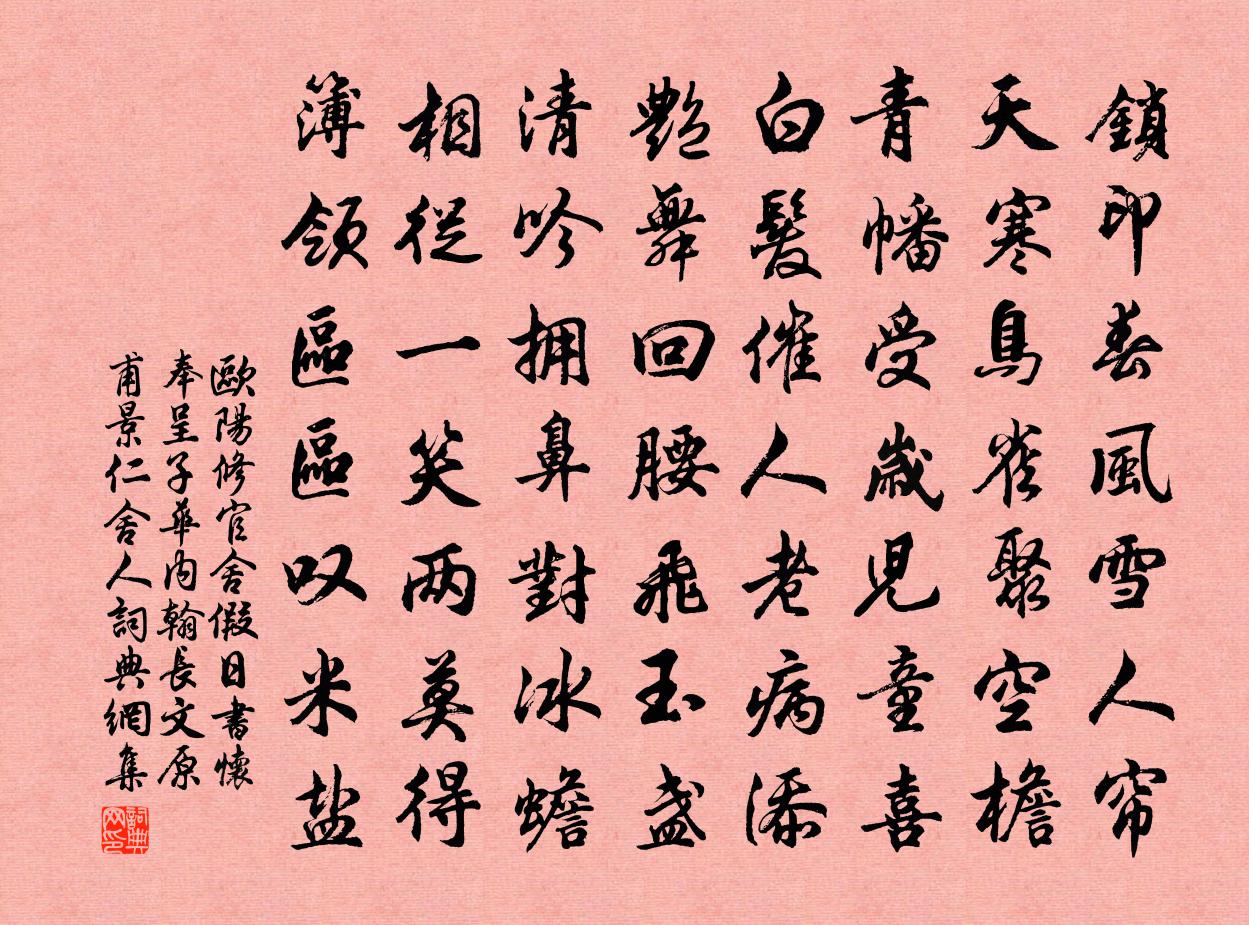 鎖印春風雪人帘
天寒鳥雀聚空檐
青幡受歲兒童喜
白髮催人老病添
艷舞回腰飛玉盞
清吟拥鼻對冰蟾
相從一笑两莫得
簿領區區叹米盐
歐陽修官舍假日書懷
奉呈子華内翰長文原
甫景仁舍人詞典網集
詞典网印